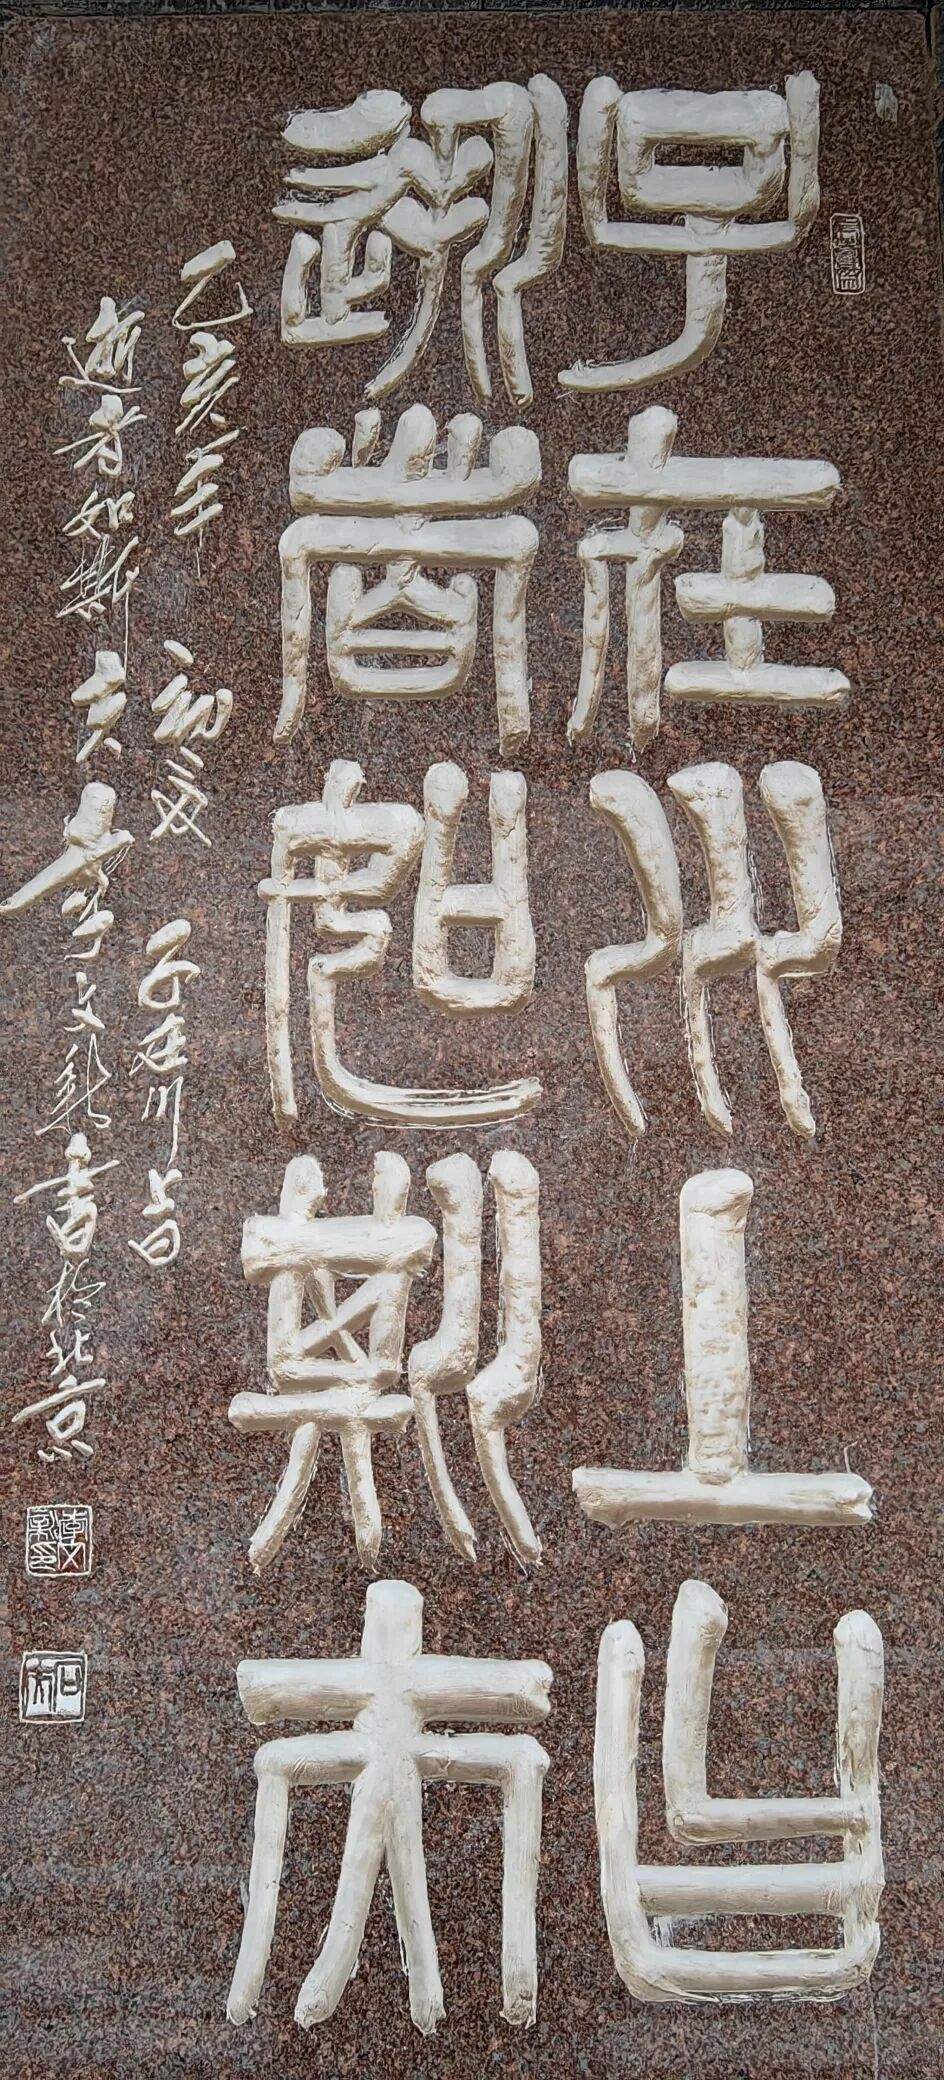 子在川上曰
逝者如斯夫
乙亥年初夏子在川上曰
逝者如斯夫李文新書於北京
李文新印